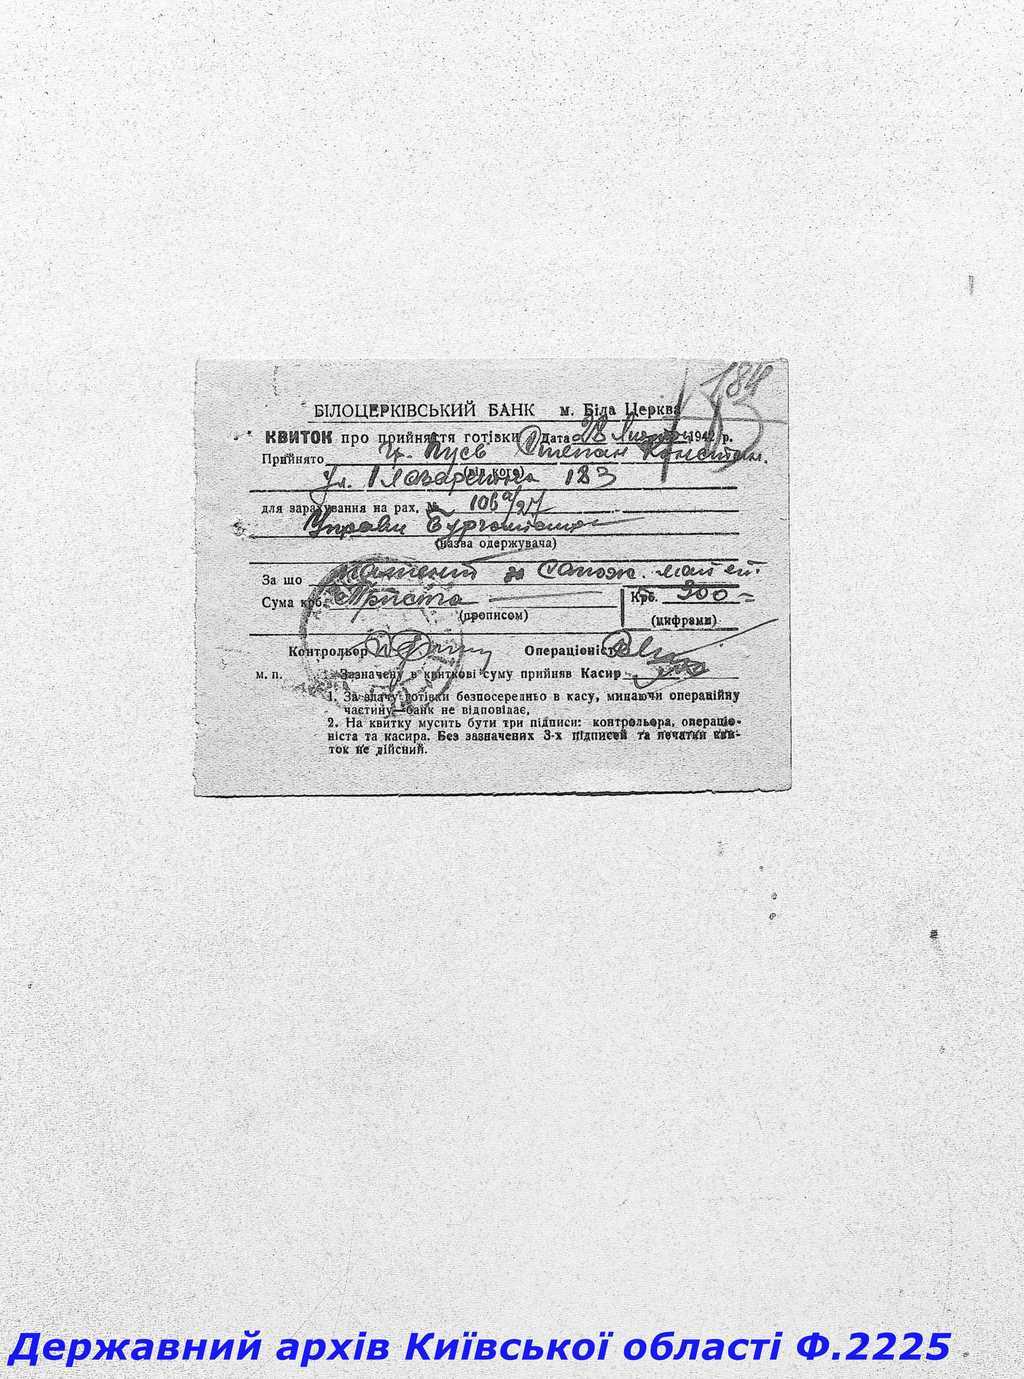 184
БІЛОЦЕРКІВСЬКИЙ БАНК м. Біла Церква
КВИТОК про прийняття готівки Дата 28 1942 р.
Прийнято Гр. Пусь Степан Констан.
(від кого)
ул. 183
для зарахування на рах. №
Управи Бургомистра
(назва одержувача)
За що патент до сапож.
Сума крб. Триста Крб. 300=
(прописом) (цифрами)
Контрольор Операціоніст
м. п. Зазначену в квиткові суму прийняв Касир
1. За здачу готівки безпосередньо в касу, минаючи операційну
частину—банк не відповідає.
2. На квитку мусить бути три підписи: контрольора, операціо-
ніста та касира. Без зазначених 3-х підписей та печатки кви-
ток не дійсний.
Державний архів Київської області Ф.2225